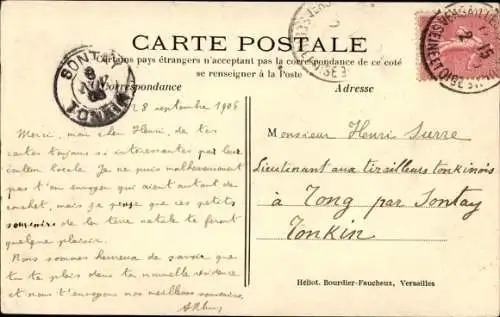 CARTE POSTALE
Certains pays étrangers n'acceptant pas la correspondance de ce coté
se renseigner à la Poste
Correspondance
Adresse
SONTAY
TONKIN
8 septembre 1905
Merci, mon cher Henri, de tes
cartes toujours si intéressantes par leur
couleur locale. Je ne puis malheureusement
pas t'en envoyer qui aient autant de
cachet, mais je pense que ces petits
souvenirs de la terre natale te feront
quelque plaisir.
Nous sommes heureux de savoir que
tu te plais dans ta nouvelle résidence
et nous t'envoyons nos meilleurs souvenirs.
Monsieur Henri Surre
Lieutenant aux tirailleurs tonkinois
à Tong par Sontay
Tonkin
Héliot. Bourdier-Faucheux, Versailles